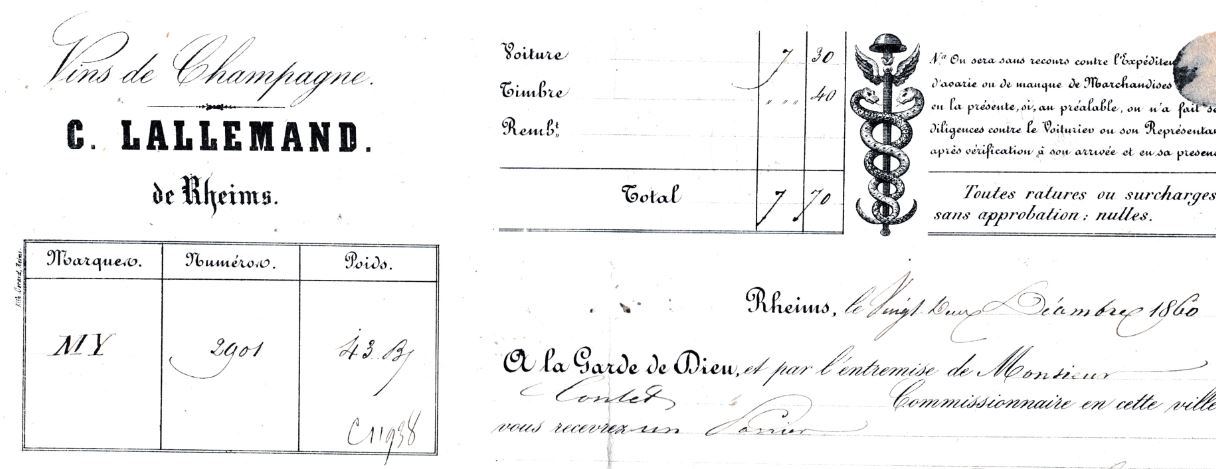 Vins de Champagne.
C. LALLEMAND.
de Rheims.
Marques. Numéros. Poids.
MY 2901 43 B
C11938
Voiture 7 30
Timbre " " 40
Remb.t
Total 7 70
N.a On sera sans recours contre l'Expéditeu
d'avarie ou de manque de Marchandises
en la présente, si, au préalable, on n'a fait se
diligences contre le Voiturier ou son Représentan
après vérification à son arrivée et en sa presenc
Toutes ratures ou surcharges
sans approbation: nulles.
Rheims, le Vingt Deux Décembre 1860
A la Garde de Dieu, et par l'entremise de Monsieur
Contet Commissionnaire en cette ville
vous recevrez un Panier